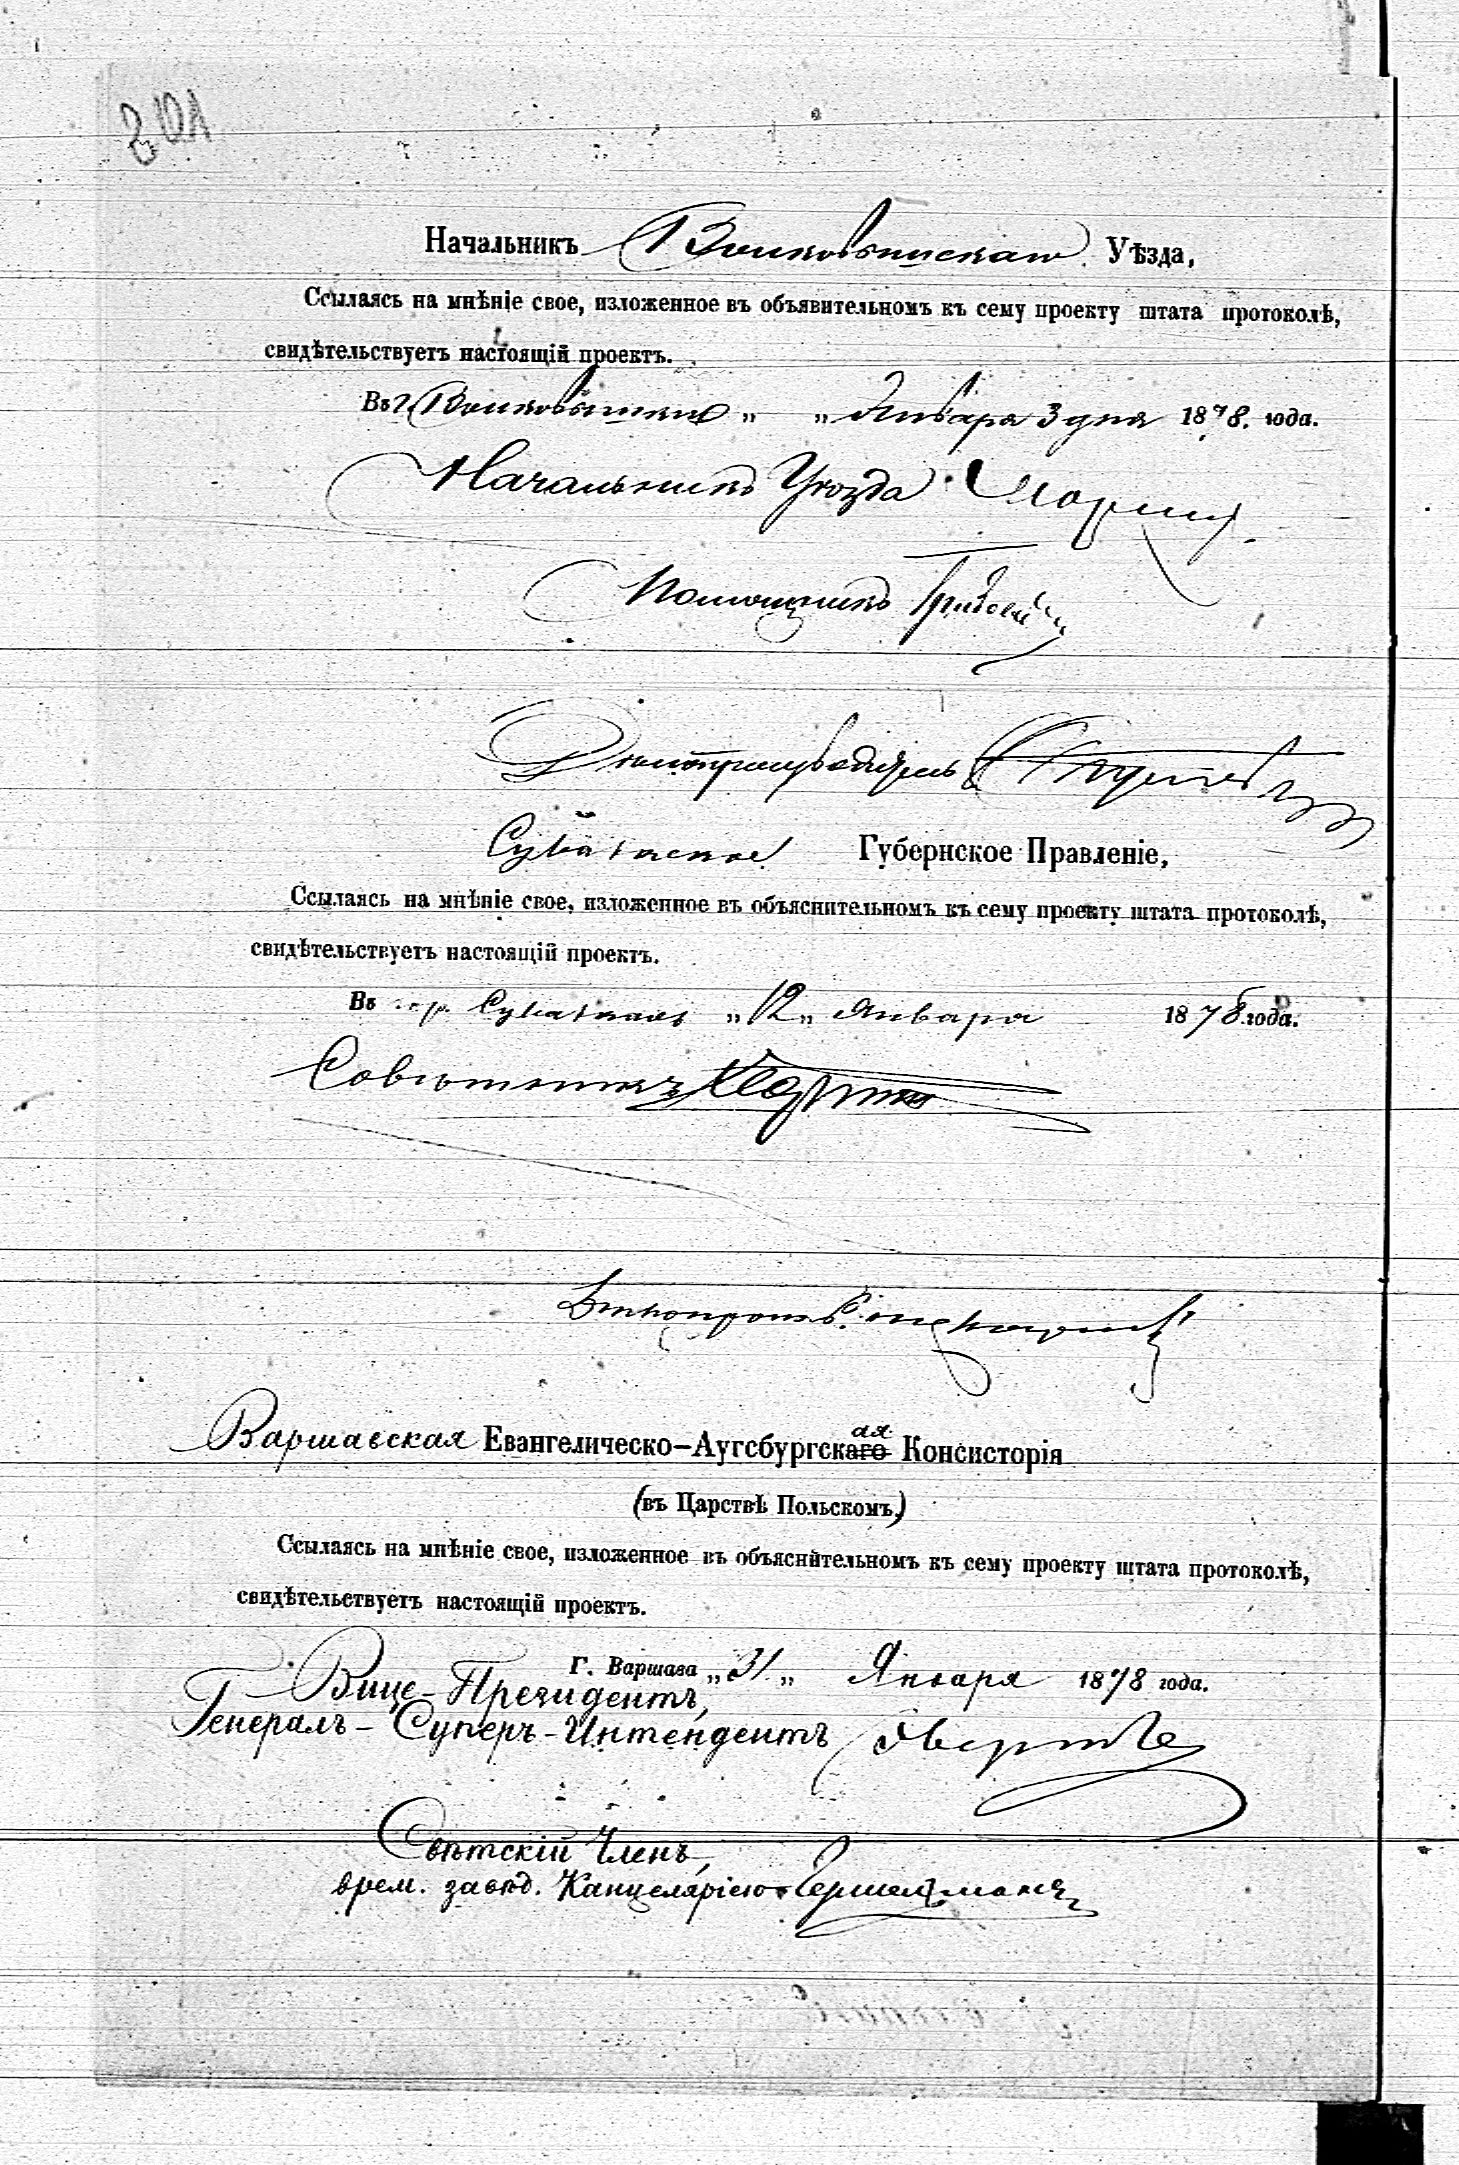 Начальникъ Волковышскаго Уѣзда,
Ссылаясь на мнѣніе свое, изложенное въ объявительномъ къ сему проекту штата протоколѣ,
свидѣтельствуетъ настоящій проектъ.
Въ г. Волковышки „ „ Января 3 дня 1878. года.
Начальникъ Уѣзда
Помощникъ
Дѣлопроизводитель
Сувалкское Губернское Правленіе,
Ссылаясь на мнѣніе свое, изложенное въ объяснительномъ къ сему проекту штата протоколѣ,
свидѣтельствуетъ настоящій проектъ.
Въ гор. Сувалкахъ „12„ Января 1878 года.
Совѣтникъ
Варшавская Евангелическо-Аугсбургскаго ая Консисторія
(въ Царствѣ Польскомъ)
Ссылаясь на мнѣніе свое, изложенное въ объяснительномъ къ сему проекту штата протоколѣ,
свидѣтельствуетъ настоящій проектъ.
Г. Варшава „31„ Января 1878 года.
Вице-Президентъ,
Генералъ-Суперъ-Интендентъ Эверте
Свѣтскій Членъ,
врем. завѣд. Канцеляріею Гершельманъ